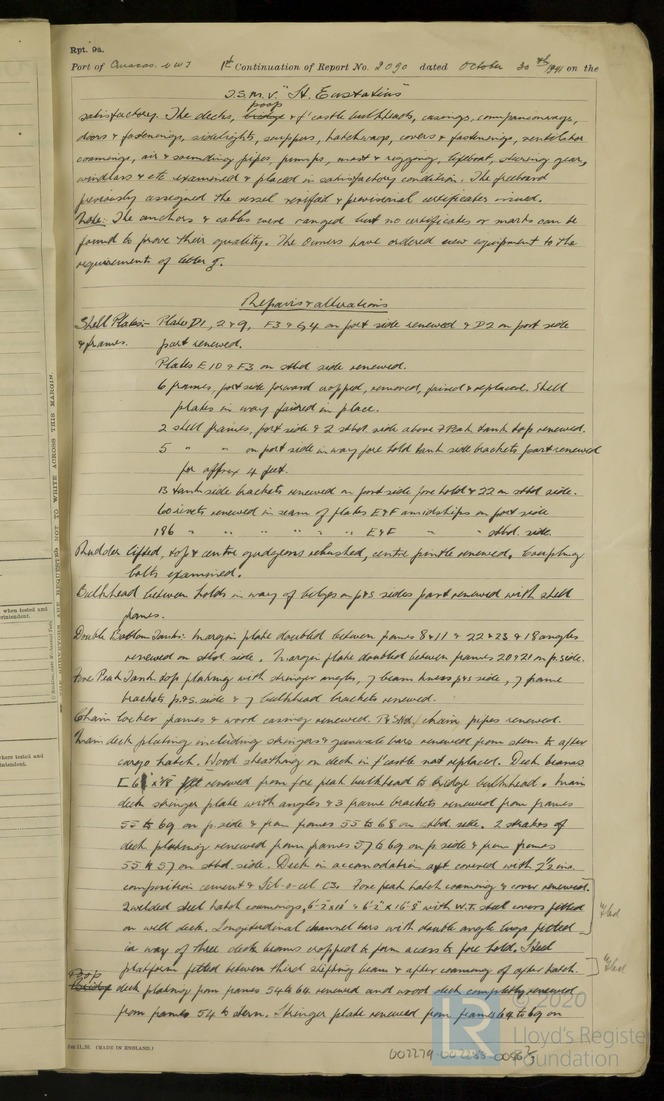 Rpt. 9a.
Port of Curacao. N W I 1st Continuation of Report No. 2090 dated October 30th 1941 on the
"St. Eustatius"
poop
satisfactory. The decks, bridge & f'castle bulkheads, casings, companionways,
doors & fastenings, sidelights, scuppers, hatchways, covers & fastenings, ventilator
coamings, air & sounding pipes, pumps, mast & rigging, lifeboat, steering gear,
windlass & etc examined & placed in satisfactory condition. The freeboard
previously assigned the vessel verified & provisional certificates issued.
Note: The anchors & cables were ranged but no certificates or marks can be
found to prove their quality. The Owners have ordered new equipment to the
requirements of letter
Repairs & alterations
Shell Plates:- Plates D1, 2 & 9, F3 & G4 on port side renewed & D2 on port side
& frames. part renewed.
Plates E10 & F3 on stbd side renewed.
6 frames, port side forward cropped, removed, faired & replaced. Shell
plates in way faired in place.
2 shell frames, port side & 2 stbd. side above F Peak tank top renewed.
5 " " on port side in way fore hold tank side brackets part renewed
for approx 4 feet.
13 tank side brackets renewed on port side fore hold & 22 on stbd side.
60 rivets renewed in seam of plates E&F amidships on port side
186 " " " " " " E&F " " stbd. side.
Rudder lifted, top & centre gudgeons rebushed, centre pintle renewed. Coupling
bolts examined.
Bulkhead between holds in way of bilges on p&s sides part renewed with shell
frames.
Double Bottom Tanks: Margin plate doubled between frames 8 & 11 & 22 & 23 & 18 angles
renewed on stbd side. Margin plate doubled between frames 20 & 21 on p. side.
Fore Peak Tank top plating with stringer angles, 7 beam knees p&s side, 7 frame
brackets p&s. side & 7 bulkhead brackets renewed.
Chain locker frames & wood casing renewed. P&Sbd. chain pipes renewed.
Main deck plating including stringers & gunwale bars renewed from stem to after
cargo hatch. Wood sheathing on deck in f'castle not replaced. Deck beams
renewed from fore peak bulkhead to bridge bulkhead. Main
deck stringer plate with angles & 3 frame brackets renewed from frames
55 to 69 on p. side & from frames 55 to 68 on stbd. side. 2 strakes of
deck plating renewed from frames 57 to 69 on p. side & from frames
55 to 57 on stbd. side. Deck in accomodation aft covered with 2½ ins.
composition cement & Fore peak hatch coaming & cover renewed.
2 welded steel hatch coamings, with W.T. steel covers fitted
on well deck. Longitudinal channel bars with double angle lugs fitted
in way of three deck beams cropped to form access to fore hold. Steel
platform fitted between third shifting beam & after coaming of after hatch.
Poop
bridge deck plating from frames 54 to 64 renewed and wood deck completely renewed
from frames 54 to stern. Stringer plate renewed from frames 64 to 69 on
THE SURVEYORS ARE REQUESTED NOT TO WRITE ACROSS THIS MARGIN.
when tested and
(MADE IN ENGLAND.)
002279-002288-0056
LR
© 2020
Lloyd's Register
Foundation